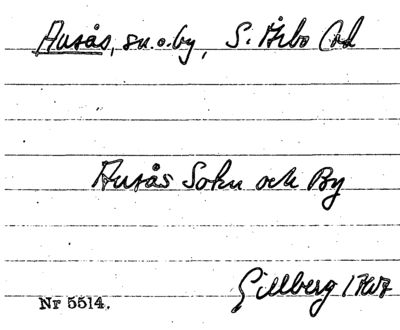 Ausås, sn. o. by, S. Åsbo hd
Ausås Sokn och By
Gillberg 1767
Nr 5514.